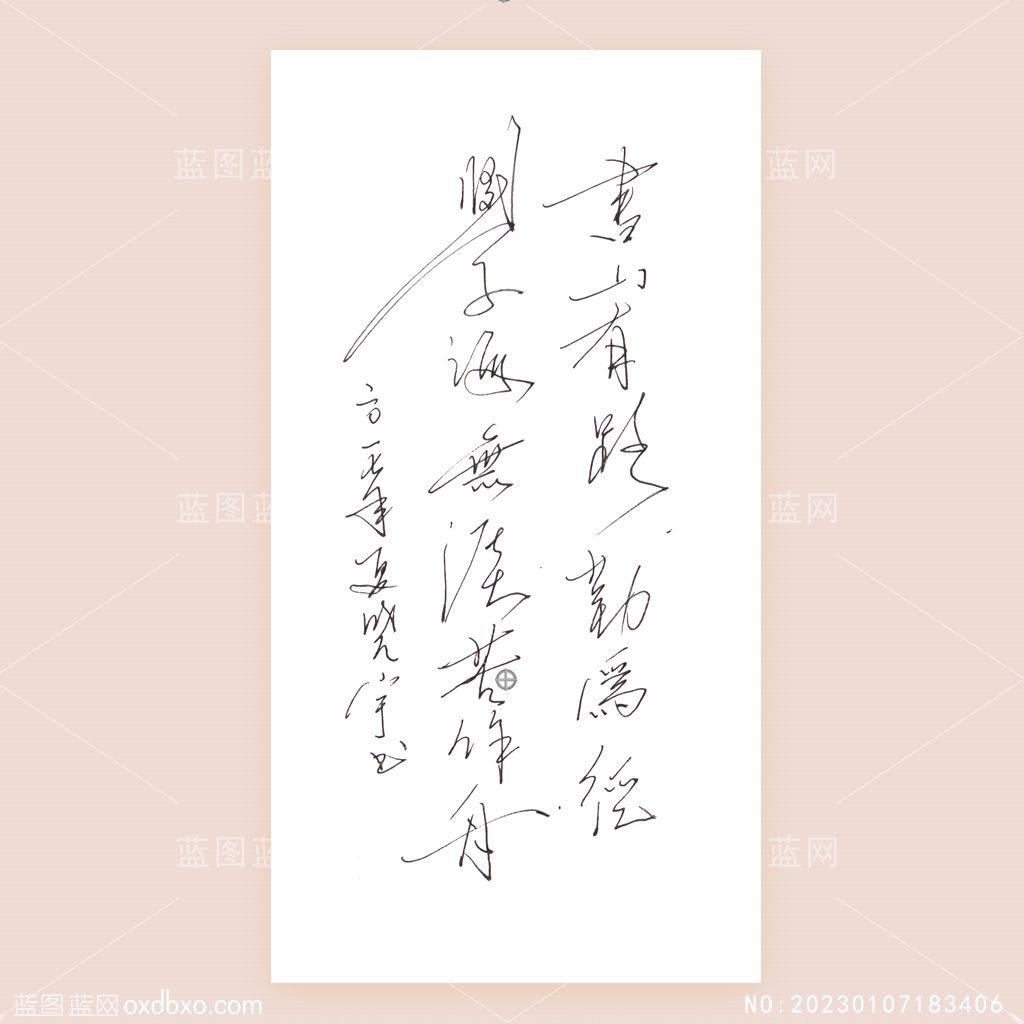 書山有路勤為徑
學海無涯苦作舟
二〇一七年夏晓宇书
蓝图蓝网
蓝网
蓝图蓝网
蓝网
蓝图蓝网
蓝网
蓝图蓝网 oxdbxo.com
NO:20230107183406